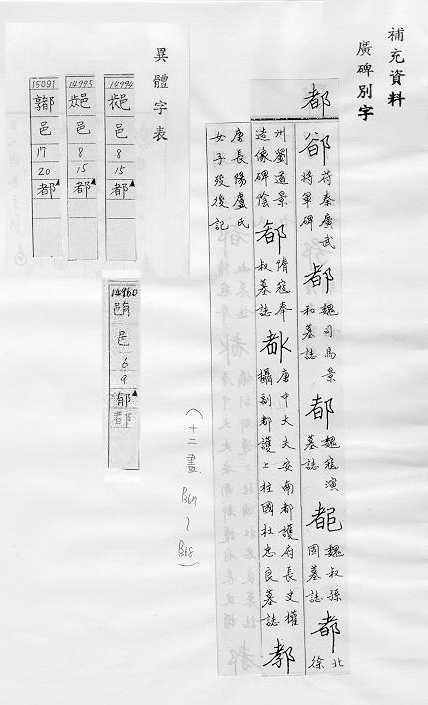 補充資料
廣碑別字
都
苻秦廣武將軍碑
都 魏司馬景和墓誌
都 魏寇演墓誌
魏叔孫固墓誌
都 北徐州劉道景造像碑陰
都 隋寇奉叔墓誌
唐中大夫安南都護府長史權攝副都護上柱國杜忠良墓誌
唐長陽盧氏女子歿後記
異體字表
14994
邑
8
15
都
14995
邑
8
15
都
15091
邑
17
20
都
14960
邑
6
9
郁
都
(十二畫